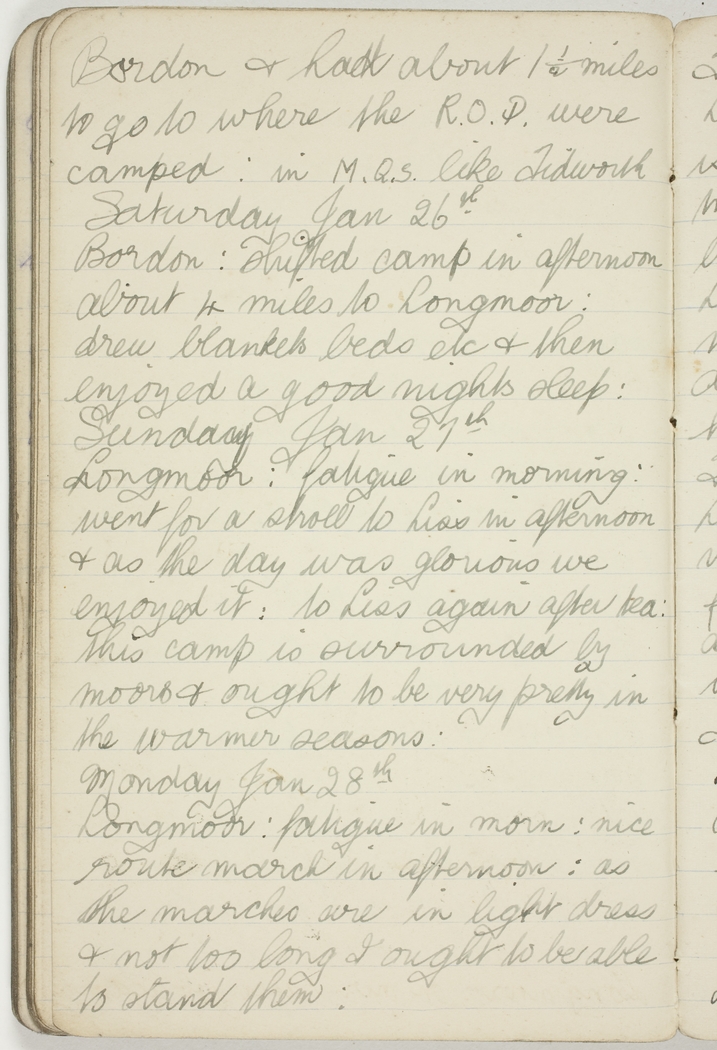 Bordon & had about 1½ miles
to go to where the R.O.D. were
camped : in M.Q.S. like Tidworth
Saturday Jan 26th
Bordon : Shifted camp in afternoon
about 4 miles to Longmoor :
drew blankets beds etc & then
enjoyed a good nights sleep :
Sunday Jan 27th
Longmoor : fatigue in morning :
went for a stroll to Liss in afternoon
& as the day was glorious we
enjoyed it : to Liss again after tea :
this camp is surrounded by
moors & ought to be very pretty in
the warmer seasons :
Monday Jan 28th
Longmoor : fatigue in morn : nice
route march in afternoon : as
the marches are in light dress
& not too long I ought to be able
to stand them :